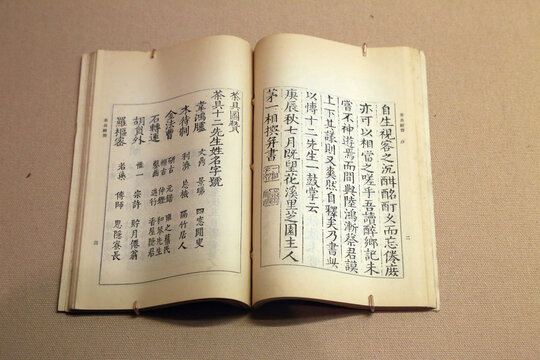 自生視客之沉酣酩酊久而忘倦庶
亦可以相當之嗟乎吾讀醉鄉記未
嘗不神遊焉而間與陸鴻漸蔡君謨
上下其議則又爽然自釋矣乃書此
以博十二先生一鼓掌云
庚辰秋七月既望花溪里芝園主人
茅一相撰并書
茶具圖贊
茶具十二先生姓名字號
韋鴻臚 文鼎 景暘 四窓閒叟
木待制 利濟 忘機 隔竹居人
金法曹 研古 元鍇 雍之舊民
轢古 仲鏗 和琴先生
石轉運 鑿齒 遄行 香屋隱君
胡員外 惟一 宗許 貯月僊翁
羅樞密 若藥 傳師 思隱寮長